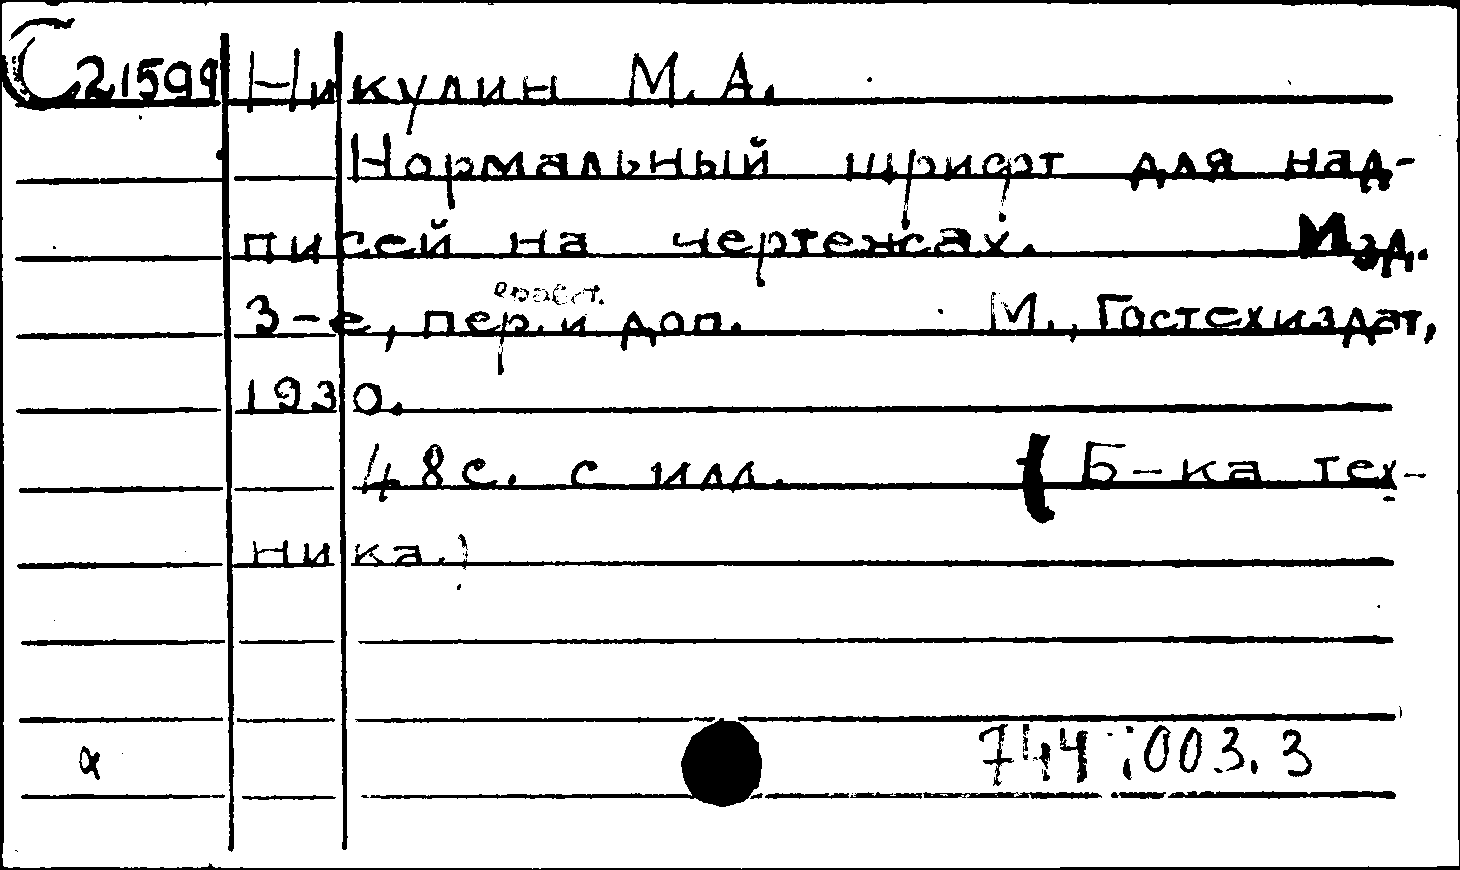 С 21599 Никулин М. А.
Нормальный шрифт для над-
писей на чертежах. Изд.
3-е, пер. и доп. М., Гостехиздат,
1930.
48 с. с илл. (Б-ка тех-
ника.)
α 744:003.3